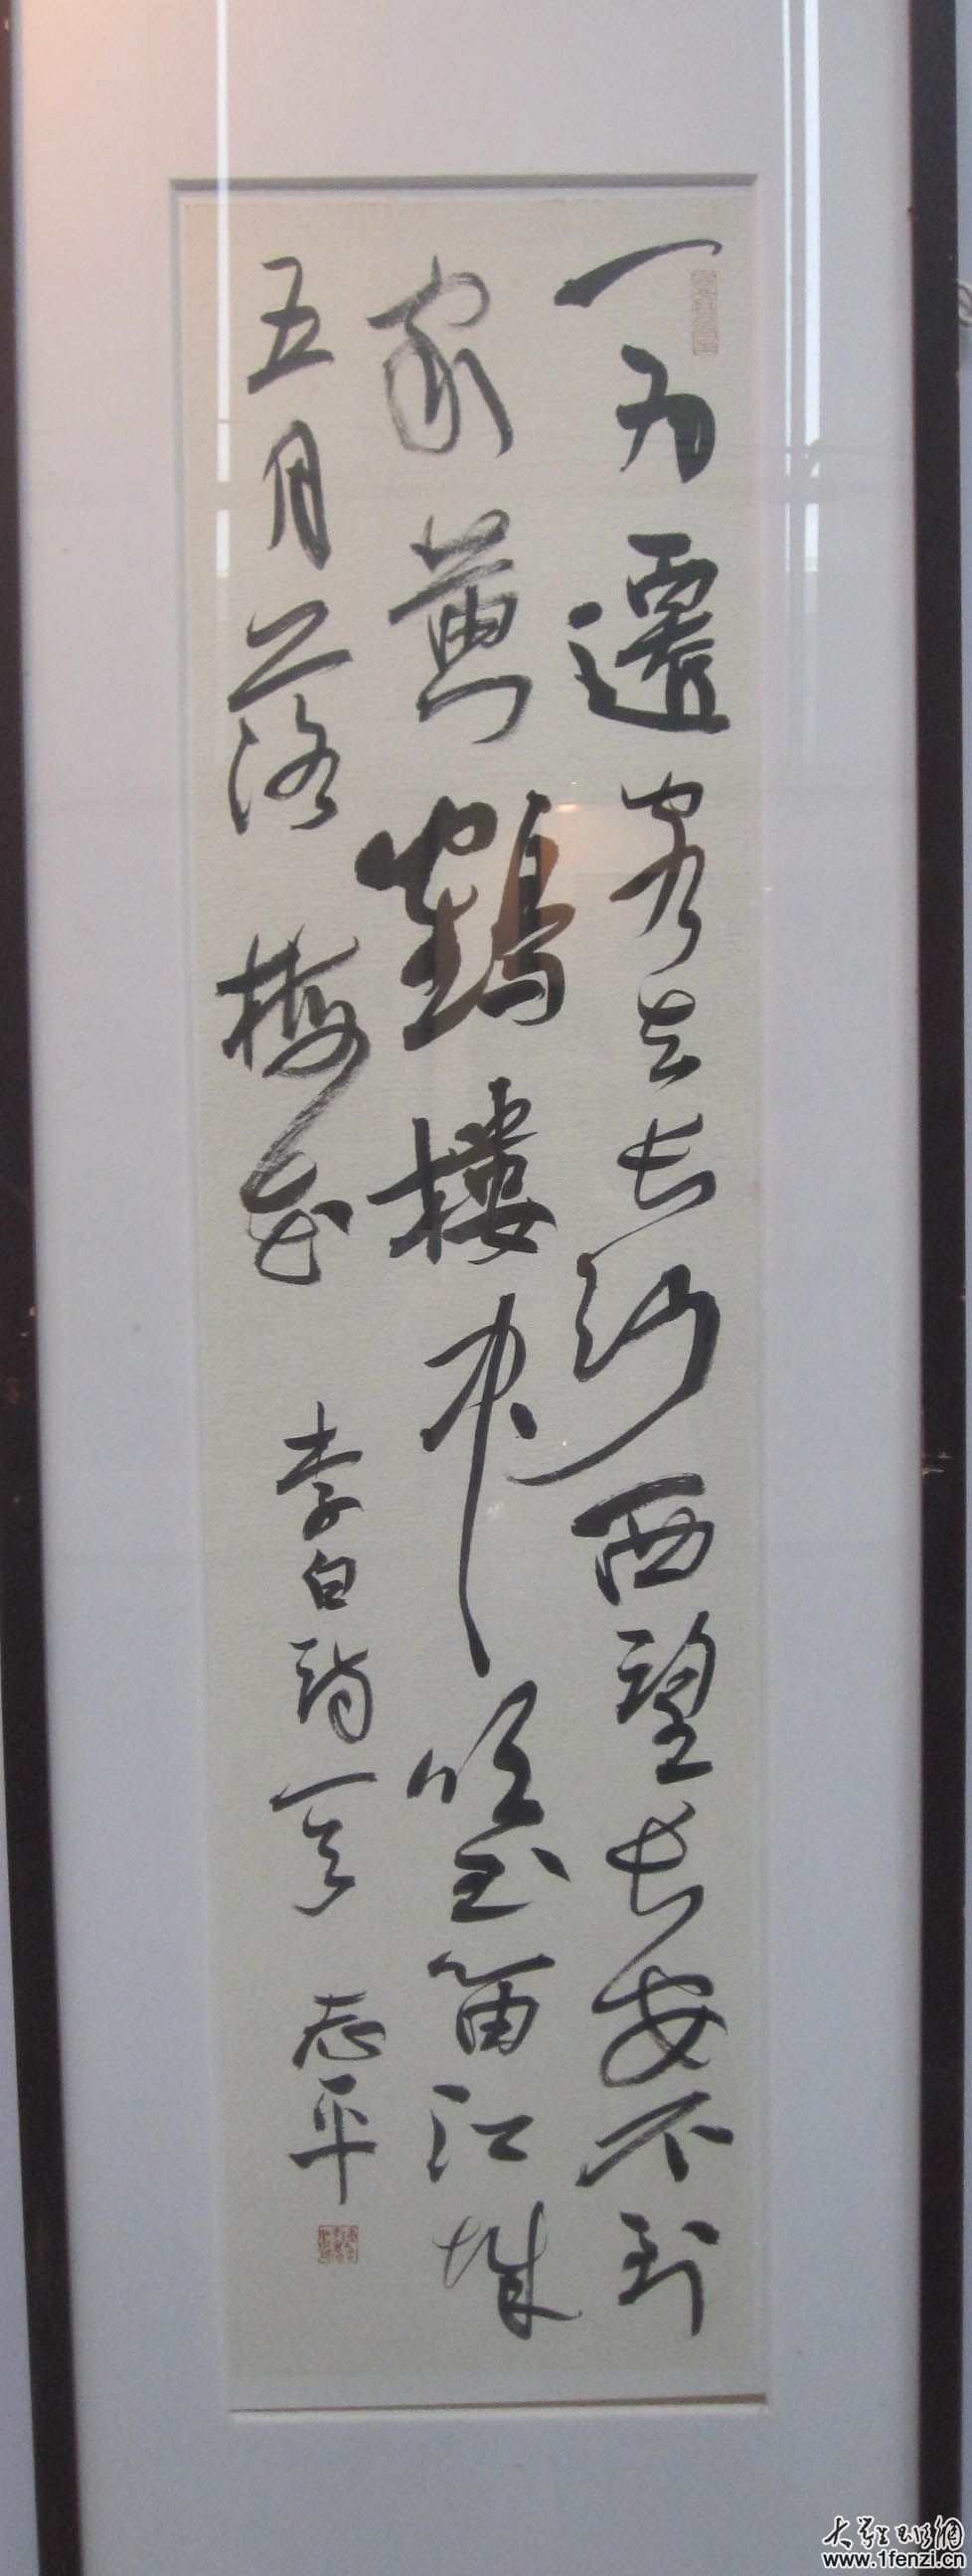 一为遷客去长沙西望长安不到
家黄鶴樓中吹玉笛江城
五月落梅花
李白詩一首 志平
www.1fenzi.cn